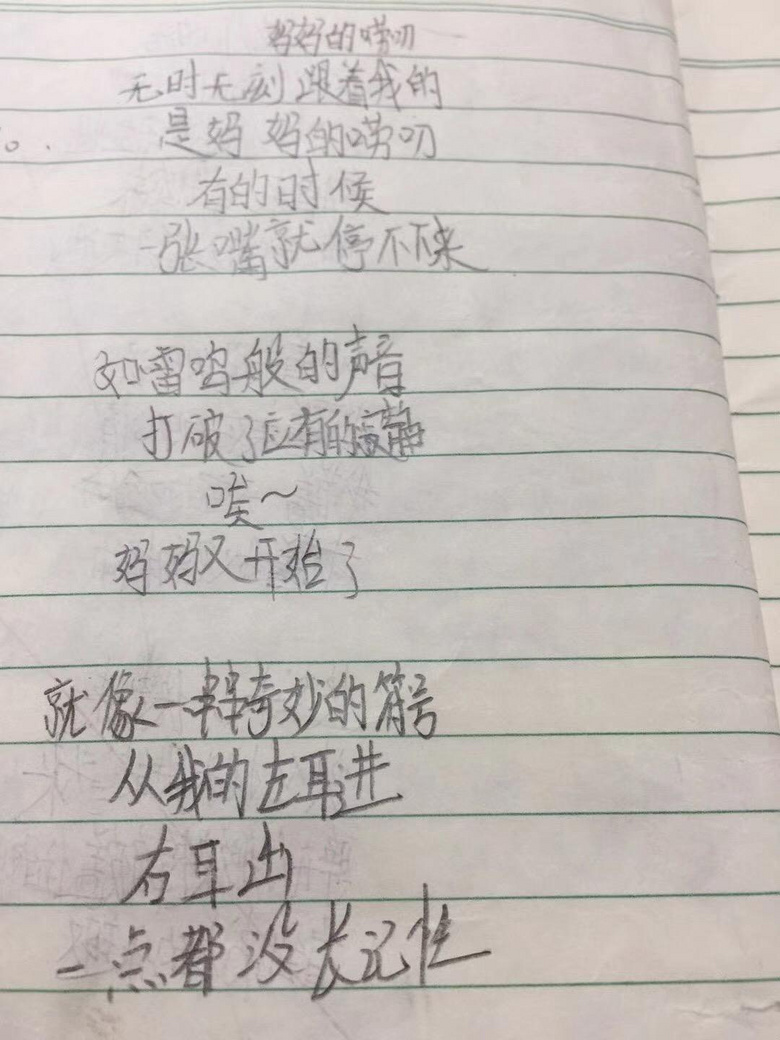 妈妈的唠叨
无时无刻跟着我的
是妈妈的唠叨
有的时候
一张嘴就停不下来
如雷鸣般的声音
打破了应有的寂静
唉~
妈妈又开始了
就像一串串奇妙的符号
从我的左耳进
右耳出
一点都没长记性